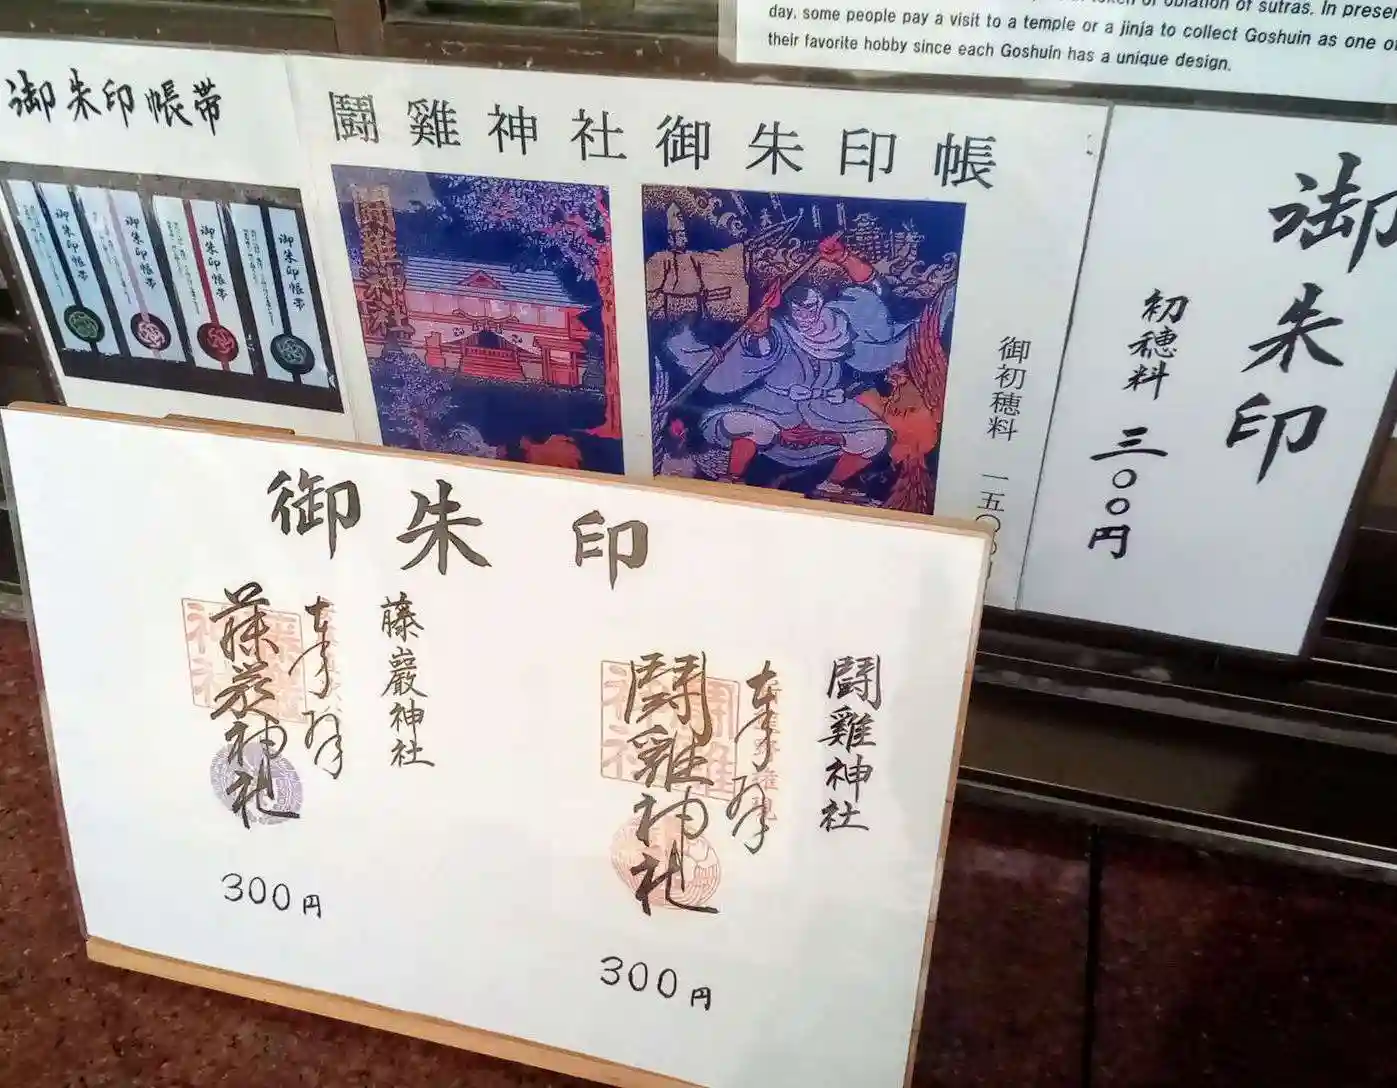 day, some people pay a visit to a temple or a jinja to collect Goshuin as one of
their favorite hobby since each Goshuin has a unique design.
御朱印帳帯
御朱印帳帯
御朱印帳帯
御朱印帳帯
御朱印帳帯
鬪雞神社御朱印帳
鬪雞神社
御初穂料 一五〇
御朱印
初穂料 三〇〇円
御朱印
鬪雞神社
奉拝
鬪雞神社
300円
藤巖神社
奉拝
藤巖神社
300円